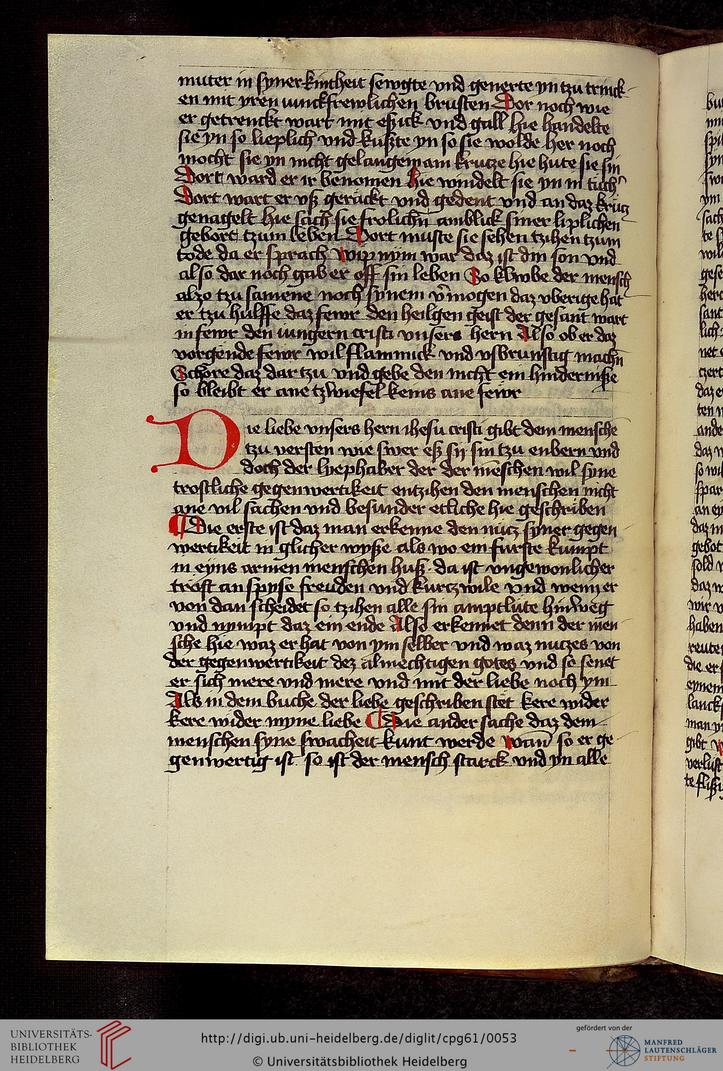 muter in syner kintheit sewgte vnd generte yn tzu trinck-
en mit yren iunckfrewlichen brusten Dor noch wie
er getrenckt wart mit essick vnd gall hie handelte
sie yn so lieplich vnd kußte yn so sie wolde her noch
mocht sie yn nicht gelangen am krucze hie hute sie sin
Dort ward er ir benomen hie windelt sie yn in tuch
Dort wart er vß gerackt vnd gedent vnd an daz krucz
genagelt hie sach sie frolichn anblick siner liplichen
gebort tzum leben Dort muste sie sehen tzihen tzum
tode da er sprach wip nym war daz ist din son vnd
also dar noch gab er off sin leben So klwbe der mensch
alzo tzu samene noch synem vermogen daz vberige hat
er tzu hulffe daz fewr den heilgen geist der gesant wart
in fewr den iungern cristi vnsers hern Also ob er daz
vorgende fewr wil flammick vnd vsbrunstig machn
Schore daz dar tzu vnd gebe den nicht ein hinderniße
so bleibt er ane tzwiefel keins ane fewr
Die liebe vnsers hern ihesu cristi gibt dem mensche
tzu versten wie swer eß sy sin tzu enbern vnd
doch der liephaber der der meschen wil syne
trostliche gegenwertikeit entzihen den menschen nicht
ane vil sachen vnd besunder etliche hie geschriben
Die erste ist daz man erkenne den nucz syner gegen
wertikeit in glicher wyße als wo ein furste kumpt
in eyns armen menschen huß. da ist vngewonlicher
trost an spyse freuden vnd kurczwile vnd wenn er
von dan scheidet so tzihen alle sin amptlute hinweg
vnd nympt daz ein ende Also erkennet denn der men
sche hie waz er hat von ym selber vnd waz nuczes von
der gegenwertikeit dez almechtigen gotes vnd so senet
er sich mere vnd mere vnd mit der liebe noch ym
Als in dem buche der liebe geschriben stet kere wider
kere wider myne liebe Die ander sache daz dem
menschen syne swacheit kunt werde wann so er ge
genwertig ist. so ist der mensch starck vnd yn alle
UNIVERSITÄTS-
BIBLIOTHEK
HEIDELBERG
http://digi.ub.uni-heidelberg.de/diglit/cpg61/0053
© Universitätsbibliothek Heidelberg
gefördert von der
MANFRED
LAUTENSCHLÄGER
STIFTUNG